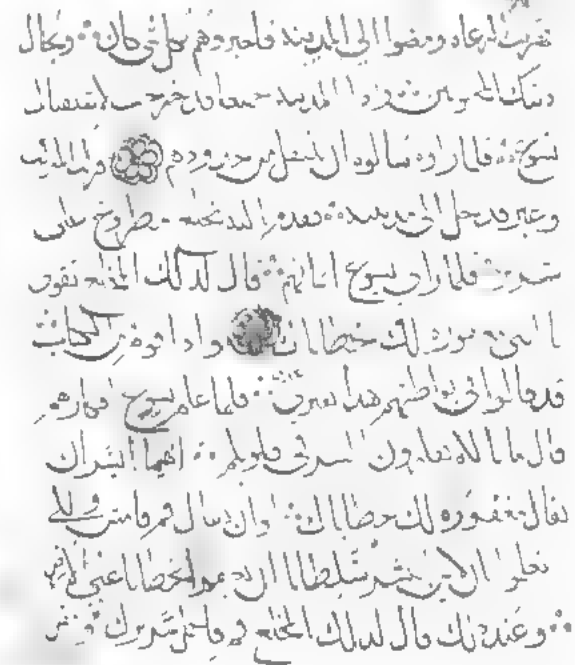 فهربت الرعاه ومضوا الى المدينه فاخبروهم بكل شى كان وبحال
دينك المجنونين واذا المدينه جميعا قد خرجت لاستقبال
يسوع فلما راوه سالوه ان ينتقل من حدودهم
وعبر فدخل الى مدينته فقدم اليه مخلع مطروح على
سرير فلما راى يسوع ايمانهم قال لذلك المخلع تقوى
يا ابنى مغفوره لك خطاياك واذا قوم من الكتاب
قد قالوا فى بواطنهم هذا يفترى فلما علم يسوع افكارهم
قال ما تفكرون الشر فى قلوبكم ايهما ايسر ان
يقال مغفوره لك خطاياك او ان يقال قم فامش ولكى
تعلموا ان لابن البشر سلطانا ان الخطايا على الارض
وعند ذلك قال لذلك المخلع قم فاحمل سريرك